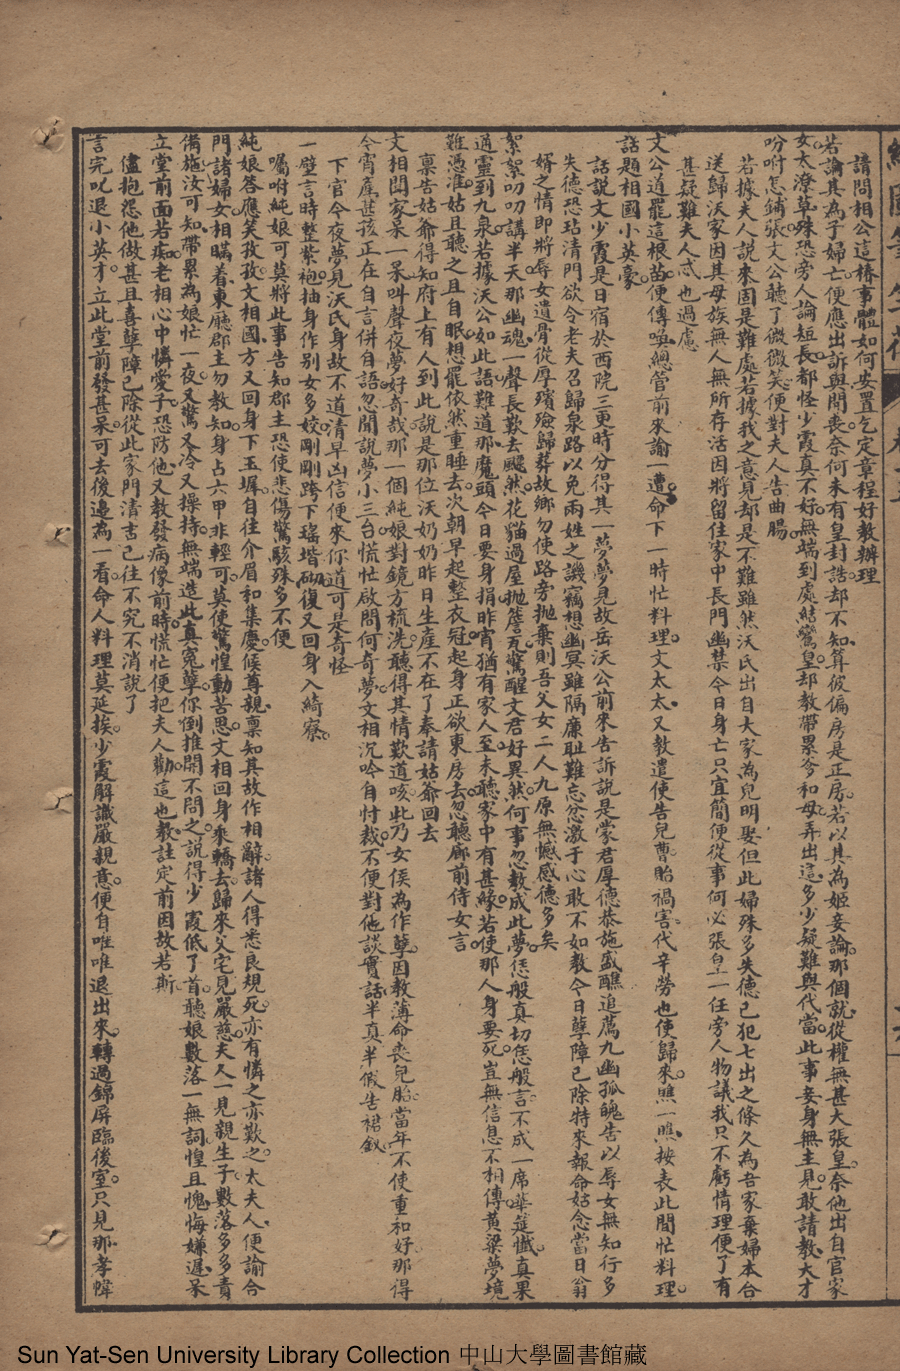 請問相公這樁事體如何安置乞定章程好教辦理
若論其為子婦亡便應出訴與聞喪奈何未有皇封誥却不知算彼偏房是正房若以其為姬妾論那個就從權無甚大張皇奈他出自官家
女太潦草殊恐旁人論短長都怪少霞真不好無端到處結鸞皇却教帶累爹和母弄出這多少疑難與代當此事妾身無主見敢請教大才
吩咐怎鋪張文公聽了微微笑便對夫人告曲腸
若據夫人說來固是難處若據我之意見却是不難雖然沃氏出自大家為兒明娶但此婦殊多失德已犯七出之條久為吾家棄婦本合
送歸沃家因其母族無人無所存活因將留住家中長門幽禁今日身亡只宜簡便從事何必張皇一任旁人物議我只不虧情理便了有
甚疑難夫人忒也過慮
文公道罷這根苗便傳喚總管前來諭一遭命下一時忙料理文太太又教遣使告兒曹貽禍害代辛勞也使歸來瞧一瞧按表此間忙料理
話題相國小英豪
話說文少霞是日宿於西院三更時分得其一夢夢見故岳沃公前來告訴說是蒙君厚德恭施盛醮追薦九幽孤魄告以辱女無知行多
失德恐玷清門欲令老夫召歸泉路以免兩姓之譏竊想幽冥雖隔廉耻難忘忿激于心敢不如教今日孽障已除特來報命姑念當日翁
婿之情即將辱女遺骨從厚殯殮歸葬故鄉勿使路旁拋棄則吾父女二人九原無憾感德多矣
絮絮叨叨講半天那幽魂一聲長歎去飄然花貓過屋拋簷瓦驚醒文君好異然何事忽教成此夢恁般真切恁般言不成一席華筵懺真果
通靈到九泉若據沃公如此語難道那魔頭今日要身捐昨宵猶有家人至未聽家中有甚緣若使那人身要死豈無信息不相傳黃粱夢境
難憑准姑且聽之且自眠想罷依然重睡去次朝早起整衣冠起身正欲東房去忽聽廊前侍女言
稟告姑爺得知府上有人到此說是那位沃奶奶昨日生產不在了奉請姑爺回去
文相聞家呆一呆叫聲夜夢好奇哉那一個純娘對鏡方梳洗聽得其情歎道咳此乃女侯為作孽因教薄命喪兒胎當年不使重和好那得
今宵產甚孩正在自言併自語忽聞說夢小三台慌忙啟問何奇夢文相沉吟自忖裁不便對他談實話半真半假告裙釵
下官今夜夢見沃氏身故不道清早凶信便來你道可是奇怪
一壁言時整紫袍抽身作別女多姣剛剛跨下瑤堦砌復又回身入綺寮
囑咐純娘可莫將此事告知郡主恐使悲傷驚駭殊多不便
純娘答應笑孜孜文相國方又回身下玉墀自往介眉和集慶候尊親稟知其故作相辭諸人得悉良規死亦有憐之亦歎之太夫人便諭合
門諸婦女相瞞着東廳郡主勿教知身占六甲非輕可莫使驚惶動苦思文相回身來轎去歸來父宅見嚴慈夫人一見親生子數落多多責
備施汝可知帶累為娘忙一夜又驚又冷又操持無端造此真冤孽你倒推開不問之說得少霞低了首聽娘數落一無詞惶且愧悔嫌遲呆
立堂前面若痴老相心中憐愛子恐防他又教發病像前時慌忙便把夫人勸這也教註定前因故若斯
儘抱怨他做甚且喜孽障已除從此家門清吉已往不究不消說了
言完叱退小英才立此堂前發甚呆可去後邊為一看命人料理莫延挨少霞解識嚴親意便自唯唯退出來轉過錦屏臨後室只見那孝幃
Sun Yat-Sen University Library Collection 中山大學圖書館藏